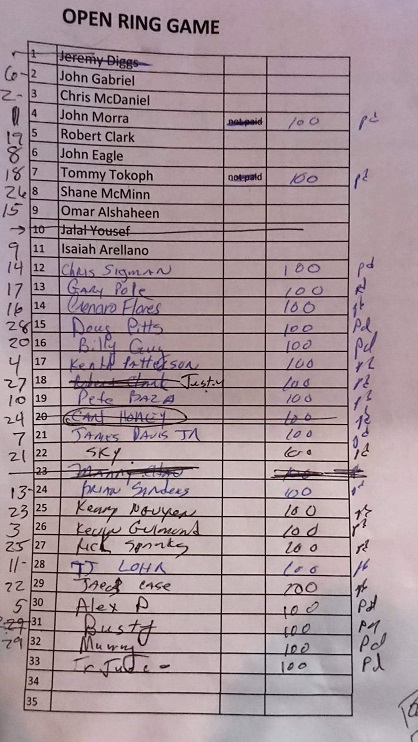 OPEN RING GAME
1 Jeremy Diggs
6- 2 John Gabriel
2- 3 Chris McDaniel
1 4 John Morra not paid 100 pd
19 5 Robert Clark
8 6 John Eagle
18 7 Tommy Tokoph not paid 100 pd
26 8 Shane McMinn
15 9 Omar Alshaheen
→ 10 Jalal Yousef
9 11 Isaiah Arellano
14 12 Chris Sigman 100 pd
17 13 Gary Pole 100 pd
16 14 Genaro Flores 100 pd
28 15 Doug Pitts 100 Pd
20 16 Billy Guy 100 Pd
4 17 Keith Patterson 100 pd
27 18 Justin 100 pd
10 19 Pete Baza 100 pd
24 20 100 pd
7 21 James Davis Jr 100 pd
21 22 Sky 100 pd
23 100
13- 24 Brian Sanders 100
23 25 Kenny Nguyen 100 pd
3 26 Kevin 100 pd
25 27 Rick 100 pd
11- 28 TJ Lohr 100 pd
22 29 Jared Case 100 pd
5 30 Alex P 100 Pd
29 31 Busty 100 Pd
29 32 100 Pd
33 100 Pd
34
35